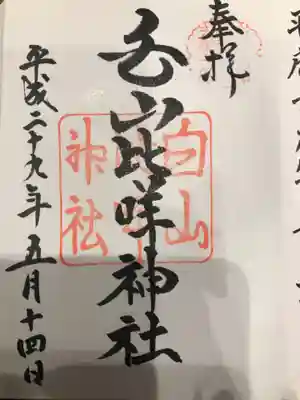 奉拝
白山比咩神社
白山
神社
平成二十九年五月十四日